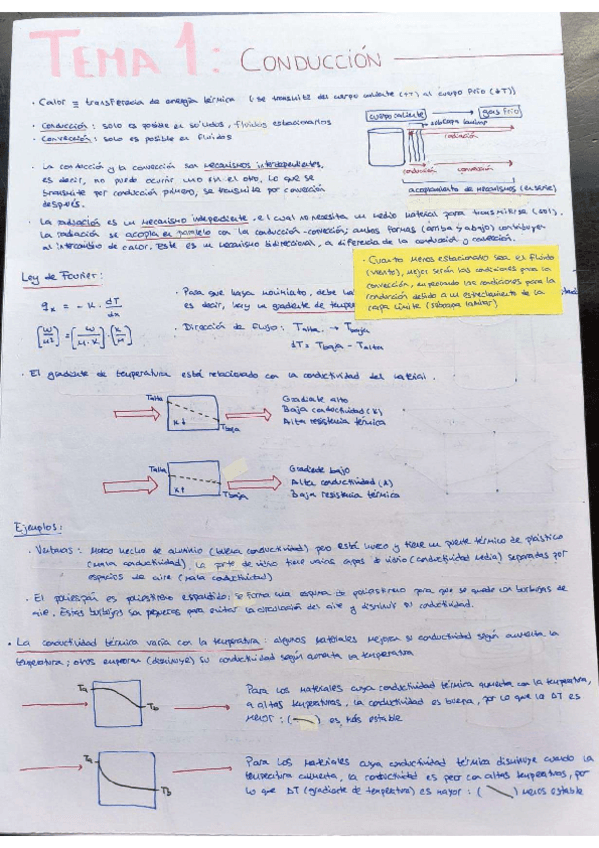 TEMA 1: CONDUCCIÓN
· Calor ≡ transferencia de energía térmica (se transmite del cuerpo caliente (↑T) al cuerpo frío (↓T))
· Conducción: solo es posible en sólidos, fluidos estacionarios
· Convección: solo es posible en fluidos
cuerpo caliente
gas frío
subcapa laminar
radiación
conducción
convección
acoplamiento de mecanismos (en serie)
· La conducción y la convección son mecanismos interdependientes,
es decir, no puede ocurrir uno sin el otro, lo que se
transmite por conducción primero, se transmite por convección
después.
· La radiación es un mecanismo independiente, el cual no necesita un medio material para transmitirse (sol).
La radiación se acopla en paralelo con la conducción-convección; ambas formas (arriba y abajo) contribuyen
al intercambio de calor. Este es un mecanismo bidireccional, a diferencia de la conducción y convección.
· Cuanto menos estacionado sea el fluido
(viento), mejor serán las condiciones para la
convección, empeorando las condiciones para la
conducción debido a un estrechamiento de la
capa límite (subcapa laminar)
Ley de Fourier:
qx = - K · dT/dx
[W/m²] = [W/m·K] · [K/m]
· Para que haya movimiento, debe
es decir, hay un gradiente de
· Dirección de flujo: Talta → Tbaja
dT = Tbaja - Talta
· El gradiente de temperatura está relacionado con la conductividad del material.
Talta
K↓
Tbaja
Gradiente alto
Baja conductividad (K)
Alta resistencia térmica
Talta
K↑
Tbaja
Gradiente bajo
Alta conductividad (K)
Baja resistencia térmica
Ejemplos:
· Ventanas: Marco hecho de aluminio (buena conductividad) pero está hueco y tiene un puente térmico de plástico
(mala conductividad). La parte de vidrio tiene varias capas de vidrio (conductividad media) separadas por
espacios de aire (mala conductividad)
· El poliespán es poliestireno expandido; se forma una espuma de poliestireno para que se quede con burbujas de
aire. Estas burbujas son pequeñas para evitar la circulación del aire y disminuir su conductividad.
· La conductividad térmica varía con la temperatura: algunos materiales mejoran su conductividad según aumenta la
temperatura; otros empeoran (disminuye) su conductividad según aumenta la temperatura
Ta
Tb
Para los materiales cuya conductividad térmica aumenta con la temperatura,
a altas temperaturas, la conductividad es buena, por lo que la ΔT es
menor: ( ) es más estable
Ta
TB
Para los materiales cuya conductividad térmica disminuye cuando la
temperatura aumenta, la conductividad es peor con altas temperaturas, por
lo que ΔT (gradiente de temperatura) es mayor: ( ) menos estable